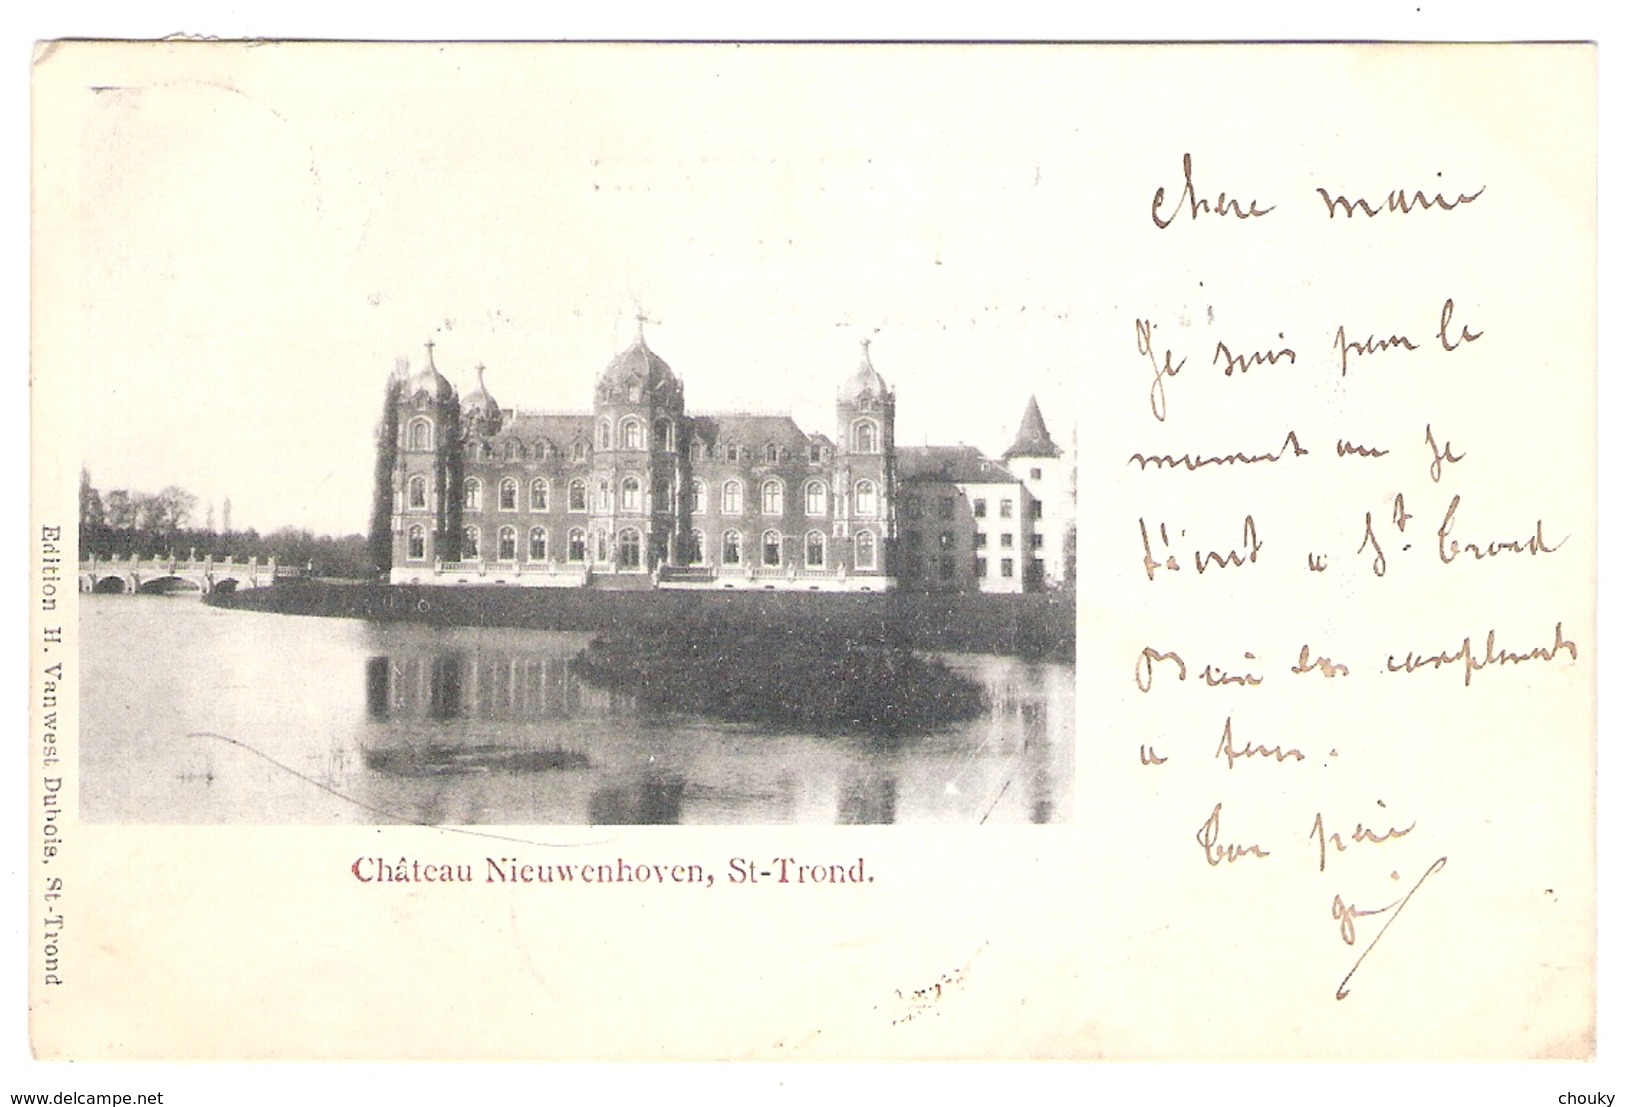 Edition H. Vanwest Dubois, St-Trond
Château Nieuwenhoven, St-Trond.
chere marie
Je suis pour le
moment ou je
t'écrit a St. Trond
Bien des compliments
a tous.
ton père
www.delcampe.net
chouky